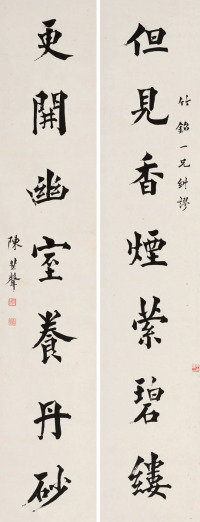 竹銘一兄糾謬
但見香煙縈碧縷
更開幽室養丹砂
陳其聲